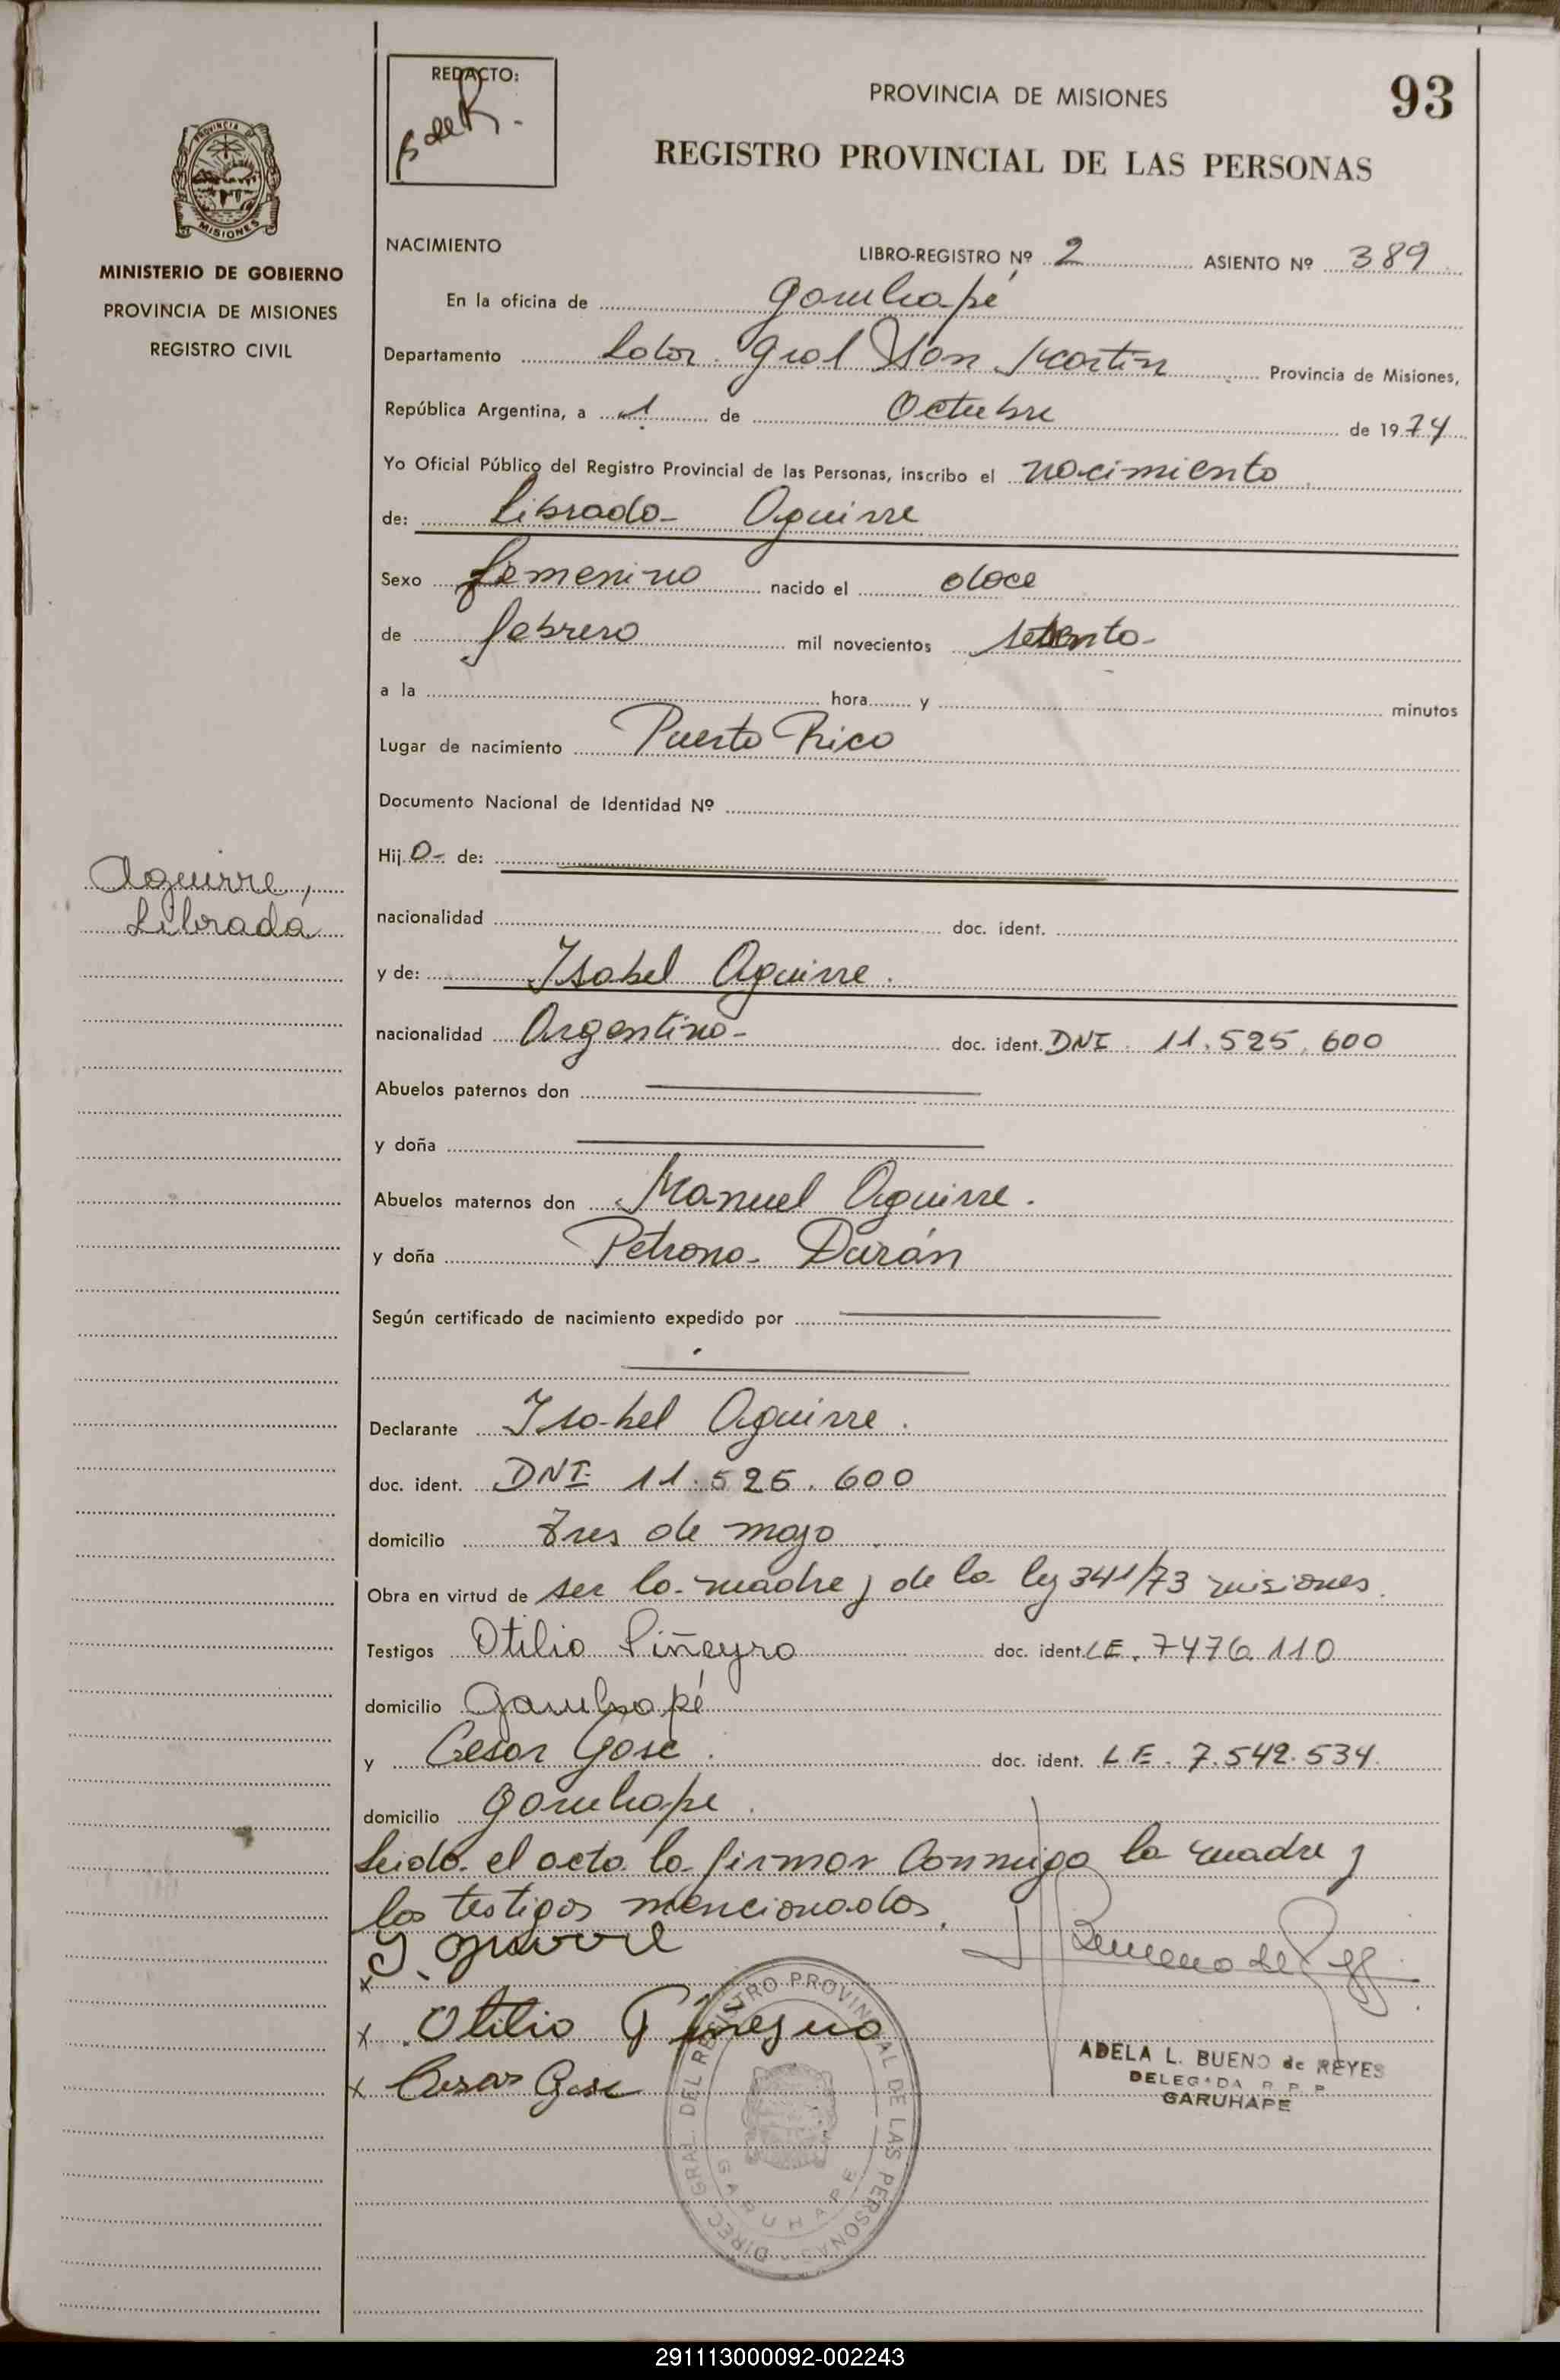 REDACTO:
B de R.
PROVINCIA DE MISIONES
93
REGISTRO PROVINCIAL DE LAS PERSONAS
PROVINCIA DE
MISIONES
MINISTERIO DE GOBIERNO
PROVINCIA DE MISIONES
REGISTRO CIVIL
NACIMIENTO
LIBRO-REGISTRO Nº 2 ASIENTO Nº 389
En la oficina de Garuhapé
Departamento Lbtor. Gral San Martin Provincia de Misiones,
República Argentina, a 1 de Octubre de 1974
Yo Oficial Público del Registro Provincial de las Personas, inscribo el nacimiento
de: Librada Aguirre
Sexo femenino nacido el doce
de febrero mil novecientos setenta
a la hora y minutos
Lugar de nacimiento Puerto Rico
Documento Nacional de Identidad Nº
Hij a de:
Aguirre,
Librada
nacionalidad doc. ident.
y de: Isabel Aguirre.
nacionalidad Argentina doc. ident. DNI 11.525.600
Abuelos paternos don
y doña
Abuelos maternos don Manuel Aguirre.
y doña Petrona Durán
Según certificado de nacimiento expedido por
Declarante Isabel Aguirre.
doc. ident. DNI 11.525.600
domicilio Tres de mayo
Obra en virtud de ser la madre y de la ley 341/73 misiones.
Testigos Otilio Piñeyro doc. ident. LE. 7476.110
domicilio Garuhapé
y Cesar Gose. doc. ident. L E. 7.542.534.
domicilio Garuhape.
Leida el acta la firman conmigo la madre y
los testigos mencionados.
I. Aguirre
x
x Otilio Piñeyro
x Cesar Gose
ADELA L. BUENO de REYES
DELEGADA R. P. P.
GARUHAPE
DIREC. GRAL. DEL REGISTRO PROVINCIAL DE LAS PERSONAS
GARUHAPE
291113000092-002243